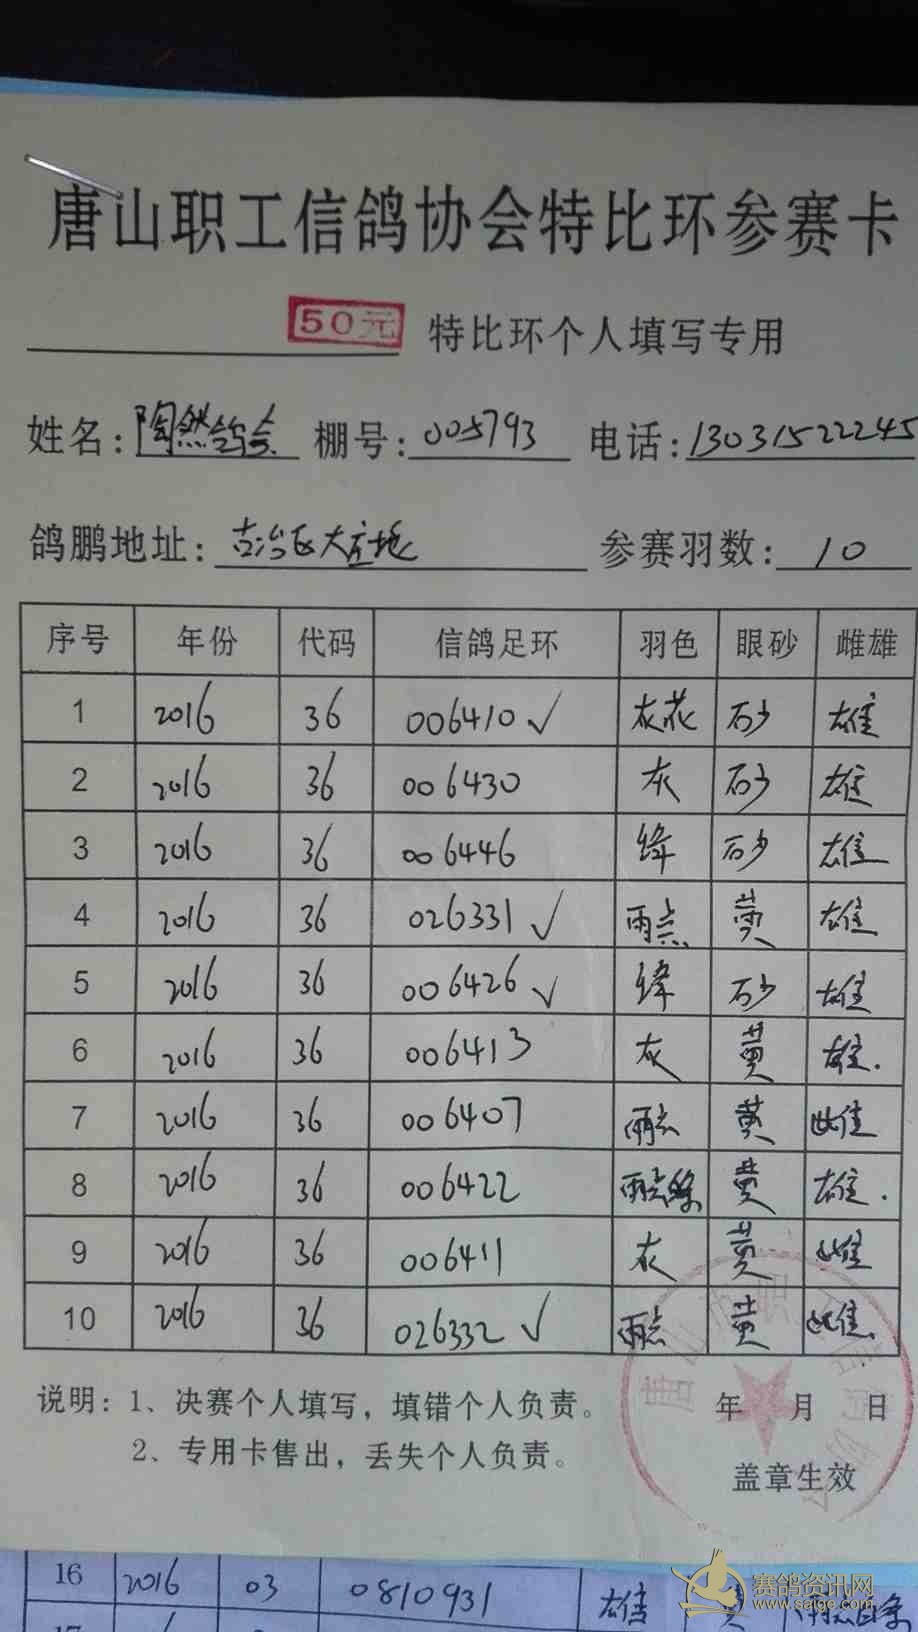 唐山职工信鸽协会特比环参赛卡
50元 特比环个人填写专用
姓名:陶然鸽舍 棚号:005793 电话:13031522245
鸽鹏地址:古冶区大庄坨 参赛羽数:10
序号 年份 代码 信鸽足环 羽色 眼砂 雌雄
1 2016 36 006410✓ 灰花 砂 雄
2 2016 36 006430 灰 砂 雄
3 2016 36 006446 绛 砂 雄
4 2016 36 026331✓ 雨点 黄 雄
5 2016 36 006426✓ 绛 砂 雄
6 2016 36 006413 灰 黄 雄.
7 2016 36 006407 雨点 黄 雌
8 2016 36 006422 雨点条 黄 雄.
9 2016 36 006411 灰 黄 雌
10 2016 36 026332✓ 雨点 黄 雌.
说明:1、决赛个人填写,填错个人负责。 年 月 日
2、专用卡售出,丢失个人负责。 盖章生效
唐山
16 2016 03 0810931 雄 黄
赛鸽资讯网
www.saige.com